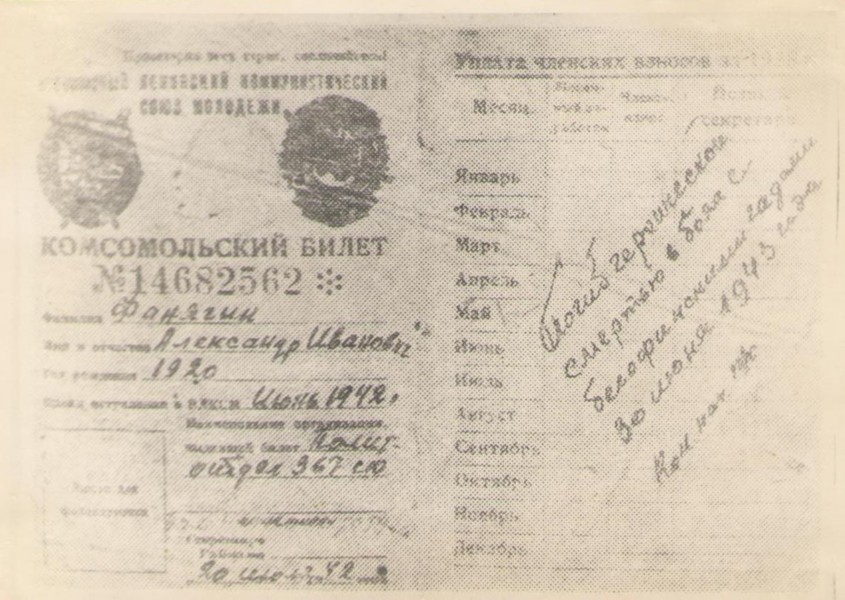 Пролетарии всех стран, соединяйтесь!
ЛЕНИНСКИЙ КОММУНИСТИЧЕСКИЙ
СОЮЗ МОЛОДЕЖИ
КОМСОМОЛЬСКИЙ БИЛЕТ
№14682562
Фамилия Фанягин
Имя и отчество Александр Иванович
Год рождения 1920
Время вступления в ВЛКСМ Июнь 1942 г.
Наименование организации,
выдавшей билет Полит-
отдел 367 сд
Место для
фотокарточки
Секретарь
Райкома
20 июля 42
Уплата членских взносов за
Месяц
Месяч-
ный за-
работок
Членск.
взнос
Подпись
секретаря
Январь
Февраль
Март
Апрель
Май
Июнь
Июль
Август
Сентябрь
Октябрь
Ноябрь
Декабрь
Погиб героической
смертью в боях с
белофинскими гадами
30 июня 1943 года